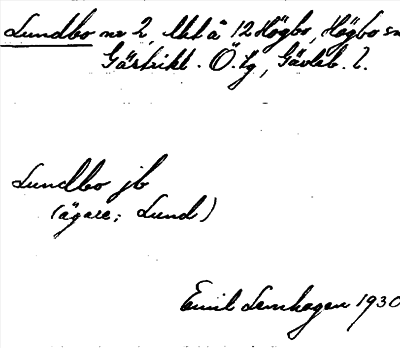 Lundbo nr 2, lht å 12 Högbo, Högbo sn
Gästrikl. Ö. tg, Gävleb. l.
Lundbo jb
(ägare; Lund)
Emil Lenhagen 1930